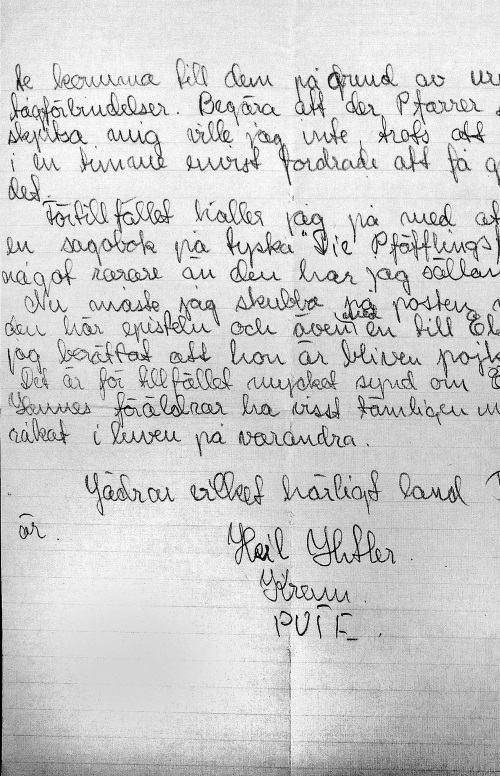 te komma till dem på grund av
tågförbindelser. Begära att der Pfarrer
skjutsa mig ville jag inte, trots att
i en timme envist fordrade att få
det.
Förtillfället håller jag på med at
en sagobok på tyska "Die Pfäfflings
något rarare än den har jag sällan
Nu måste jag skubba på posten
den här episteln och även med en till
jag berättat att hon är bliven
Det är för tillfället mycket synd om
föräldrar ha visst tämligen
råkat i luven på varandra.
Jädrar vilket härligt land
är.
Heil Hitler.
Kram
PUTE.